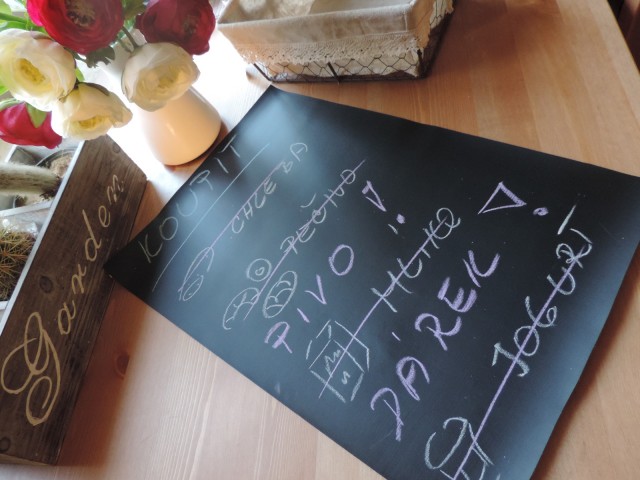 KOUPIT
CHLEBA
PEČIVO
PIVO !
MLÉKO
DÁREK !
JOGURT
Garden